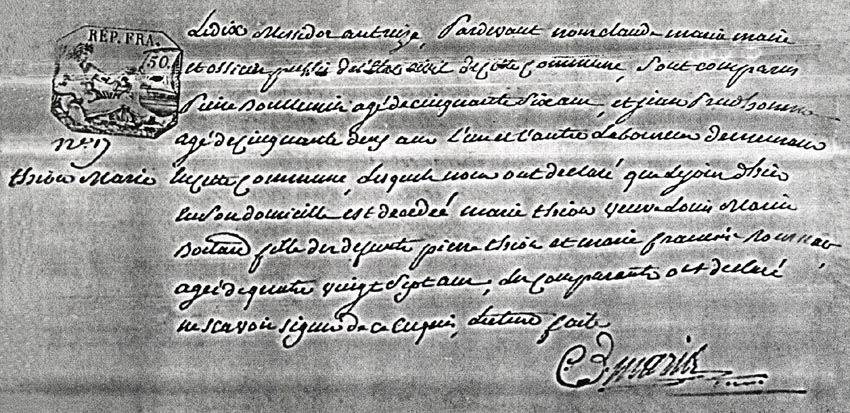 REP. FRA.
50.
Le dix Messidor an treize, Pardevant nous claude marie maire
et officier public de l'état civil de cette Commune, Sont comparus
Pierre agé de cinquante six ans, et jean Prudhomme
agé de cinquante deux ans l'un et l'autre Laboureur demeurans
en cette Commune, Lesquels nous ont declaré que le jour d'hier
en son domicille est decedée marie thiou veuve Louis Marie
fille des defunts pierre thiou et marie francoise
agée de quatre vingt Sept ans, Les Comparants ont declaré
ne scavoir signer de ce Enquis, Lecture faite
C. D. marie
thiou Marie